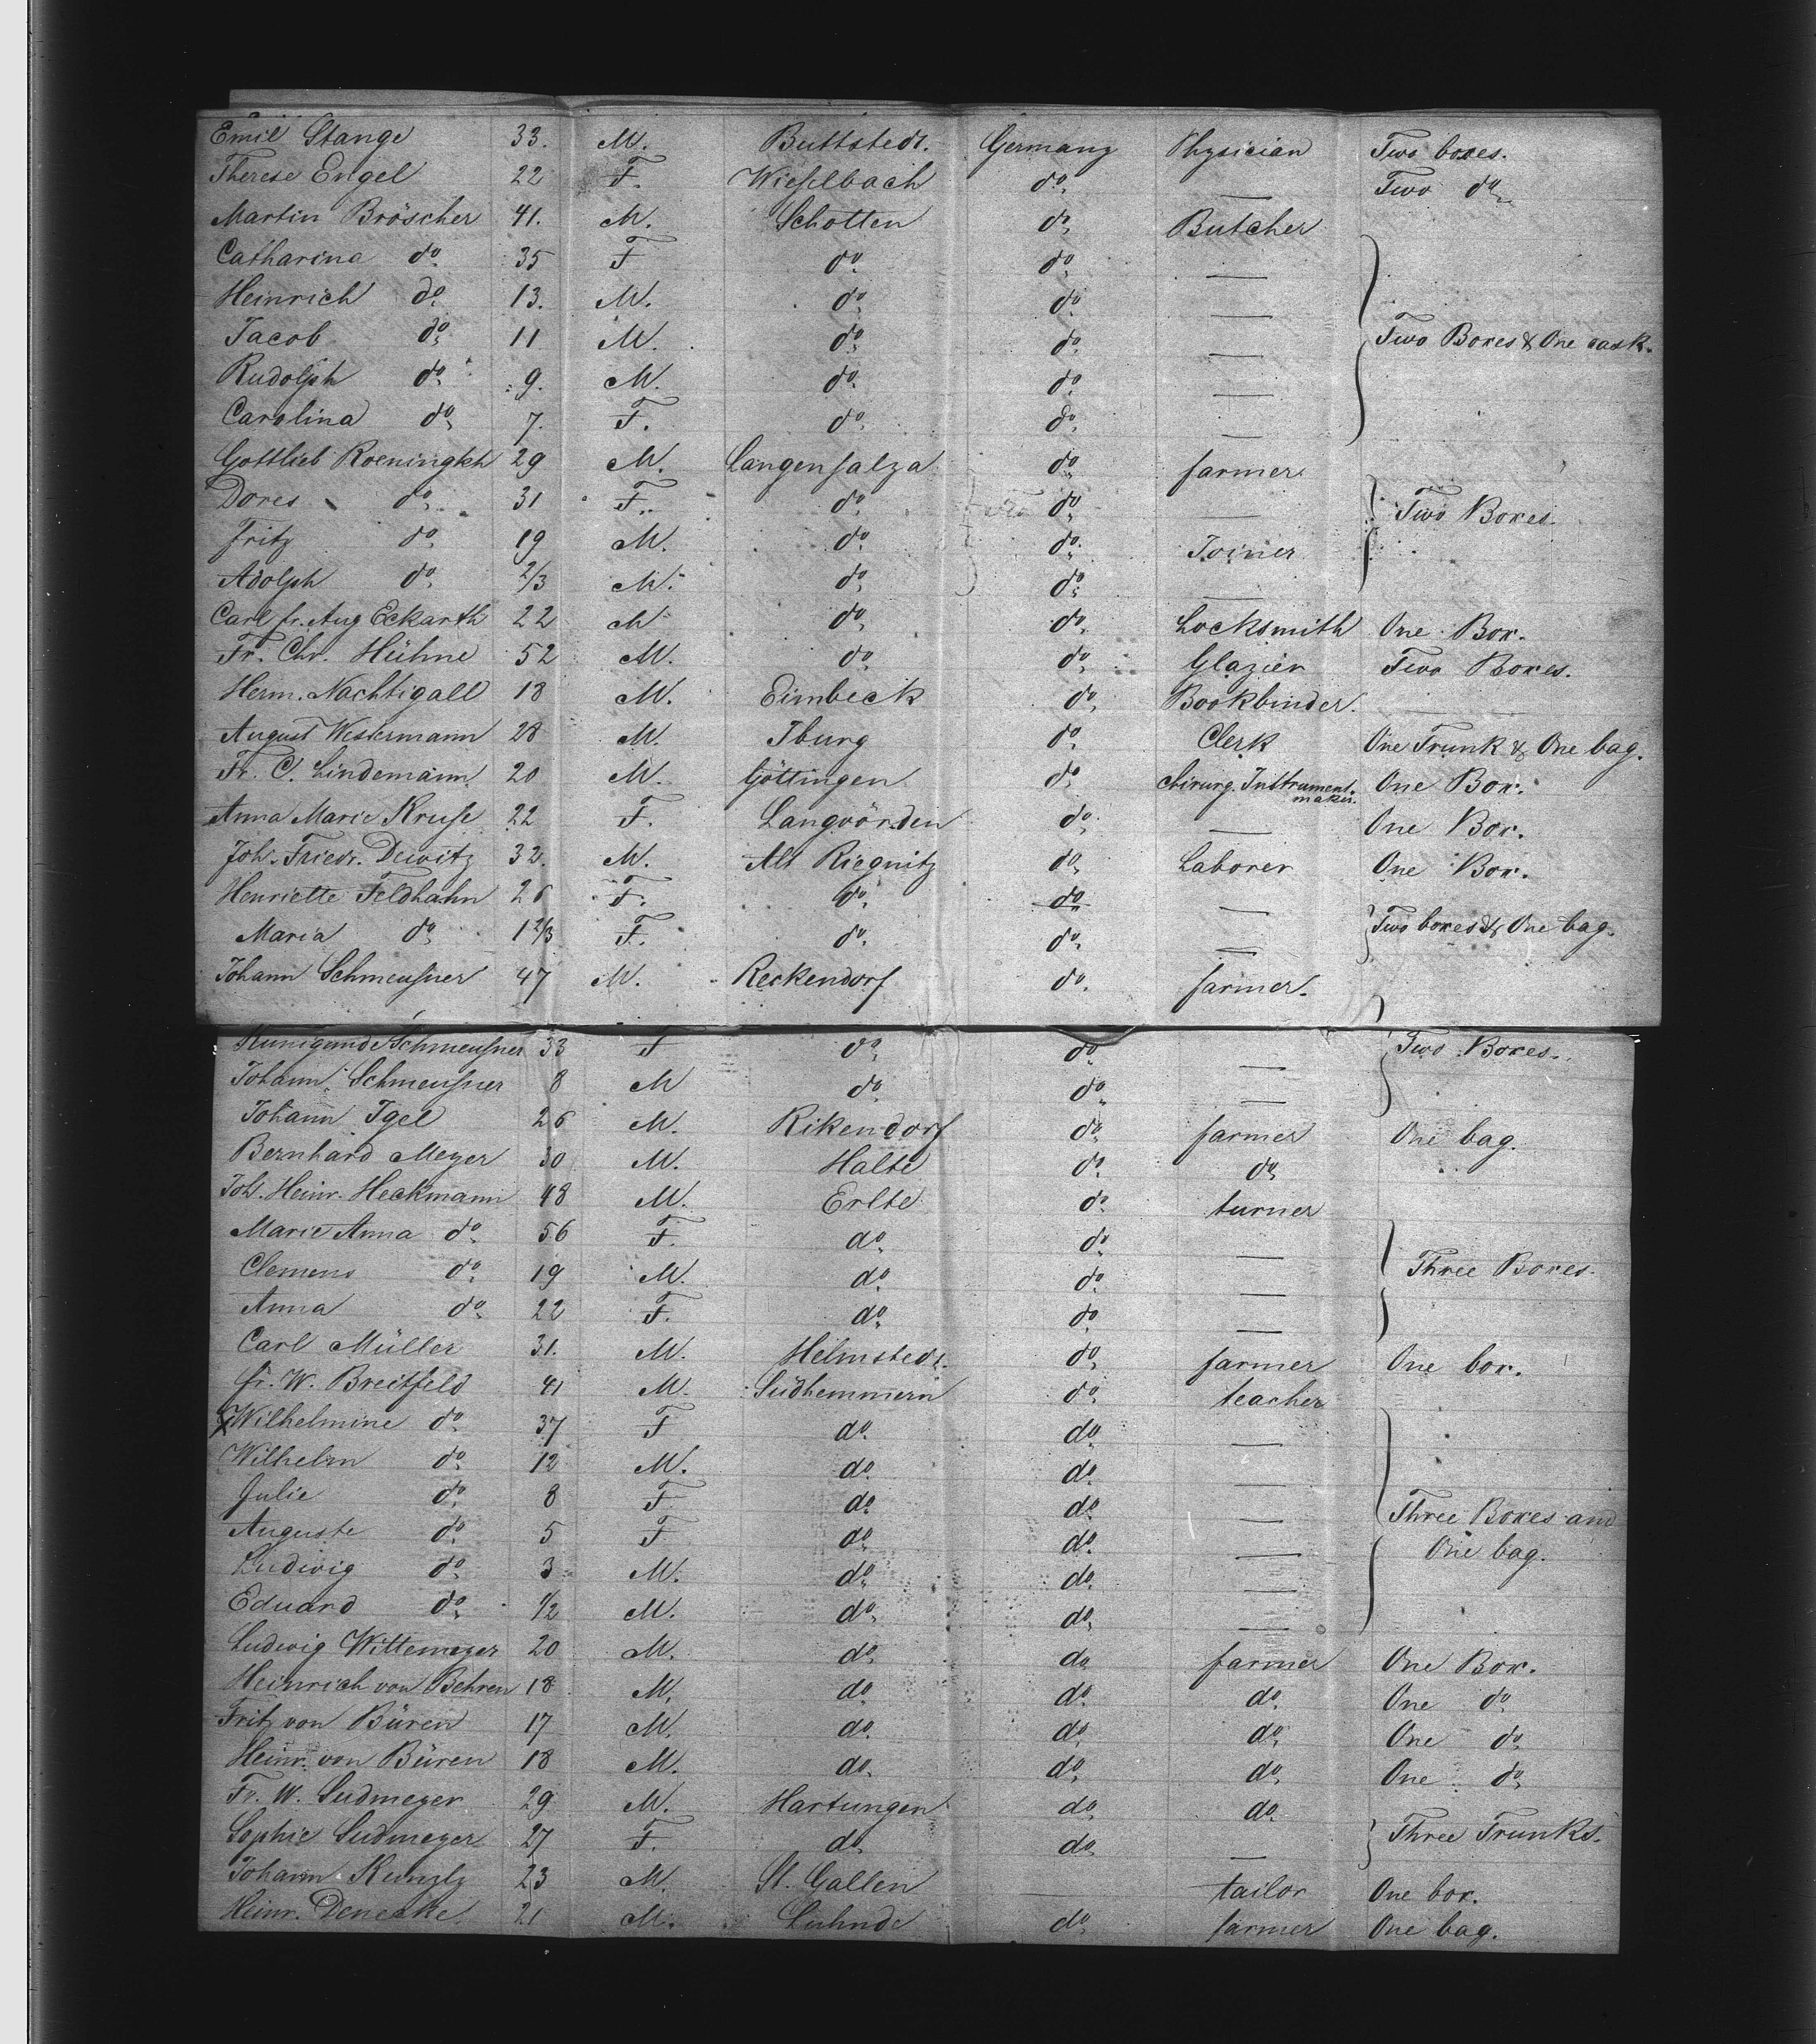 Emil Stange 33. M. Buttstedt. Germany Physician Two boxes.
Therese Engel 22 F. Wieſelbach do. — Two do.
Martin Bröscher 41. M. Schotten do. Butcher
Catharina do. 35 F do. do. —
Heinrich do. 13. M. do. do. —
Jacob do. 11 M. do. do. — Two Boxes & One cask.
Rudolph do. 9. M. do. do. —
Carolina do. 7. F. do. do. —
Gottlieb Roeningkh 29 M. Langenſalza do. farmer
Dores do. 31 F. do. do. — Two Boxes.
Fritz do. 19 M. do. do. Joiner
Adolph do. 2/3 M. do. do. —
Carl fr. Aug Eckarth 22 M do. do. Locksmith One Box.
Fr. Chr. Hühne 52 M. do. do. Glazier Two Boxes.
Herm. Nachtigall 18 M. Eimbeck do. Bookbinder. —
August Westermann 28 M. Iburg do. Clerk One Trunk & One bag.
Fr. C. Lindemann 20 M. Göttingen do. Chirurg. Instrument. maker. One Box.
Anna Marie Kruſe 22 F. Langvörden do. — One Box.
Joh. Friedr. Dewitz 32. M. Alt Riegnitz do. Laborer One Box.
Henriette Feldhahn 26 F. do. do. —
Maria do. 1 2/3 F. do. do. — Two boxes & One bag.
Johann Schmeuſner 47 M. Reckendorf do. farmer.
Kunigund Schmeuſner 33 F do. do. — Two Boxes.
Johann Schmeuſner 8 M do. do. —
Johann Igel 26 M. Rikendorf do. farmer One bag.
Bernhard Meyer 30 M. Halte do. do.
Joh. Heinr. Heckmann 48 M. Erlte do. turner
Marie Anna do. 56 F. do. do. —
Clemens do. 19 M. do. do. — Three Boxes.
Anna do. 22 F. do. do. —
Carl Müller 31. M. Helmstedt. do. farmer One box.
fr. W. Breitfeld 41 M. Südhemmern do. teacher
Wilhelmine do. 37 F do. do. —
Wilhelm do. 12 M. do. do. —
Julie do. 8 F do. do. — Three Boxes and
Auguste do. 5 F do. do. — One bag.
Ludwig do. 3 M. do. do. —
Eduard do. 1/2 M. do. do. —
Ludwig Wittemeyer 20 M. do. do farmer One Box.
Heinrich von Behren 18 M. do. do. do. One do.
Fritz von Büren 17 M. do. do. do. One do.
Heinr. von Büren 18 M. do. do. do. One do.
Fr. W. Sudmeyer 29 M. Hartungen do. do.
Sophie Sudmeyer 27 F. do. do. — Three Trunks.
Johann Kunzly 23 M. St. Gallen — tailor One box.
Heinr. Denecke 21 M. Luhnde do. farmer One bag.